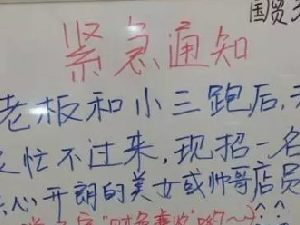 国贸
紧急通知
老板和小三跑后,
忙不过来,现招一名
心开朗的美女或帅哥店员